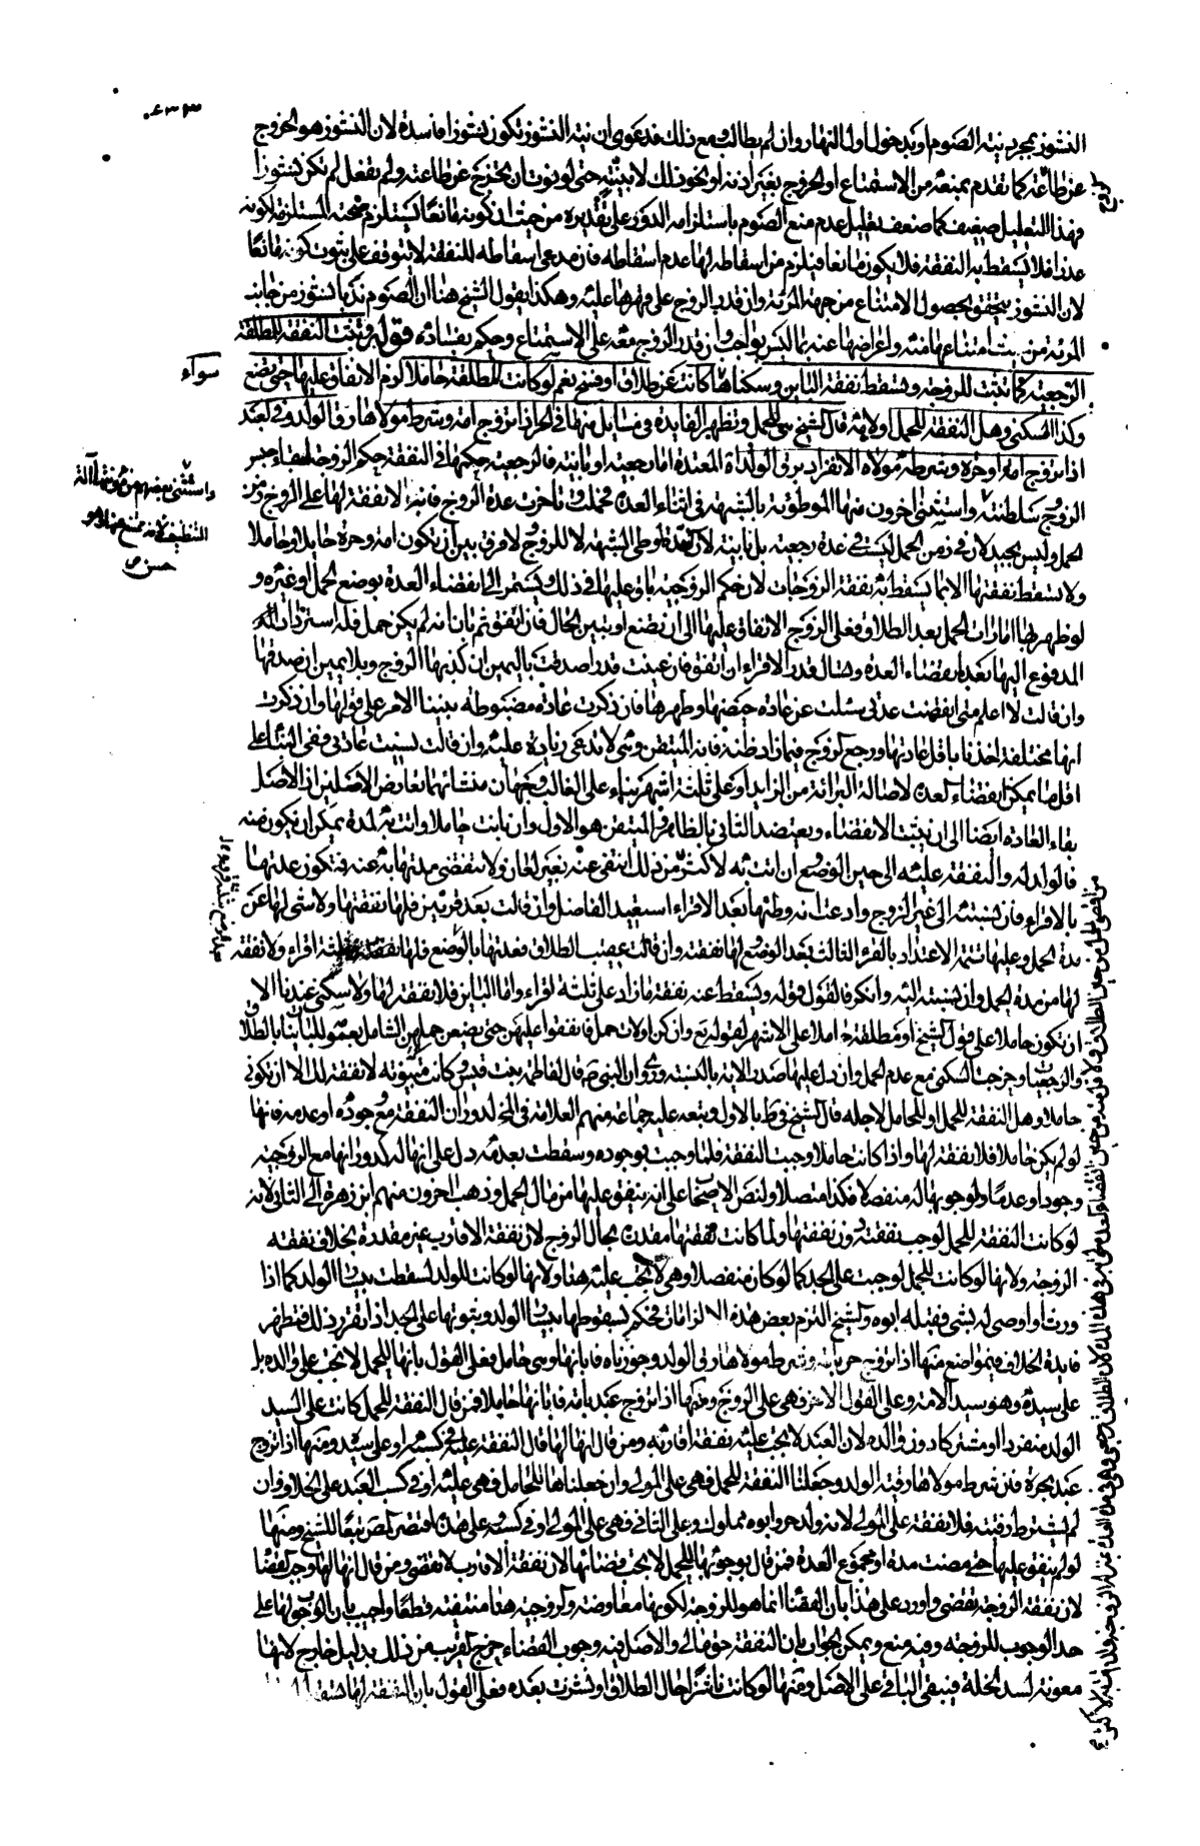 النشوز بمجرد نية الصوم او بدخول اول النهار وان لم يطالب مع ذلك فدعوى ان نية النشوز تكون نشوزا فاسدة لان النشوز هو الخروج
عن طاعته كما تقدم بمنعه من الاستمتاع او الخروج بغير اذنه او نحو ذلك لا بنيته حتى لو نوت ان تخرج عن طاعته ولم تفعل لم يكن نشوزا
فهذا التعليل ضعيف كما ضعف تعليل عدم منع الصوم باستلزامه الدور على تقديره من حيث ان كونه مانعا يستلزم صحته المستلزمة لكونه
عذرا فلا يسقط به النفقة فلا يكون مانعا فيلزم من اسقاطه لها عدم اسقاطه فان مدعى اسقاطه للنفقة لا يتوقف على ثبوت كونه مانعا
لان النشوز يتحقق بحصول الامتناع من جهة المرئة وان قدر الزوج على قهرها عليه وهكذا يقول الشيخ هنا ان الصوم ندبا نشوز من جانب
المرئة من حيث امتناعها منه واعراضها عنه بما ليس بواجب وان قدر الزوج معه على الاستمتاع وحكم بفساده قوله وتثبت النفقة للمطلقة
الرجعية كما تثبت للزوجة وتسقط نفقة البائن وسكناها كانت عن طلاق او فسخ نعم لو كانت المطلقة حاملا لزم الانفاق عليها حتى تضع
سواء
وكذا السكنى وهل النفقة للحمل او لامه قال الشيخ هي للحمل وتظهر الفايدة في مسايل منها في الحر اذا تزوج امة وشرط مولاها رق الولد وفي العبد
اذا تزوج امة او حرة وشرط مولاه الانفراد برق الولد المعتدة اما رجعية او باينة فالرجعية حكمها في النفقة حكم الزوجة لبقاء حبس
الزوج وسلطنته واستثنى اخرون منها الموطوئة بالشبهة في اثناء العدة فحملت وتأخرت عدة الزوج فانه لا نفقة لها على الزوج زمن
واستثنى بعضهم من مؤنتها آلة
التنظيف لانه ممتنع عنها وهو
حسن ص
الحمل وليس بجيد لان في زمن الحمل ليست في عدة رجعية بل باينة لان العدة لوطئ الشبهة لا للزوج لا فرق بين ان يكون امة وحرة حايلا وحاملا
ولا تسقط نفقتها الا بما يسقط به نفقة الزوجات لان حكم الزوجية باق عليها في ذلك ويستمر الى انقضاء العدة بوضع الحمل او غيره و
لو ظهر بها امارات الحمل بعد الطلاق فعلى الزوج الانفاق عليها الى ان تضع او يتبين الحال فان انفق ثم بان انه لم يكن حمل فله استرداد
المدفوع اليها بعد انقضاء العدة وتسأل قدر الاقراء ان اتفق فان عينت قدرا صدقت باليمين ان كذبها الزوج وبلا يمين ان صدقها
وان قالت لا اعلم متى انقضت عدتي سئلت عن عادة حيضها وطهرها فان ذكرت عادة مضبوطة بنينا الامر على قولها وان ذكرت
انها مختلفة اخذنا باقل عاداتها ورجع الزوج فيما زاد ظنه فانه المتيقن وهي لا تدعى زيادة عليه وان قالت نسيت عادتي ففي البناء على
اقل ما يمكن انقضاء العدة لاصالة البرائة من الزايد او على ثلثة اشهر بناء على الغالب وجهان منشأهما تعارض الاصلين اذ الاصل
بقاء العادة ايضا الى ان يثبت الانقضاء ويعتضد الثاني بالظاهر والمتيقن هو الاول وان بانت حاملا واتت به لمدة يمكن ان يكون منه
فالولد له والنفقة عليه الى حين الوضع وان اتت به لاكثر من ذلك انتفى عنه بغير لعان ولا تنقضي عدتها به عنه فتكون عدتها
بالاقراء فان نسبته الى غير الزوج وادعت انه وطئها بعد الاقراء استعيد الفاضل وان قالت بعد قرئين فلها نفقتها ولا شئ لها عن
مدة الحمل وعليها تتمة الاعتداد بالقرء الثالث بعد الوضع لها نفقته وان قالت عقيب الطلاق فعدتها بالوضع فلها نفقة ثلثة اقراء ولا نفقة
لها من مدة الحمل وان نسبته اليه وانكر فالقول قوله وتسقط عنه نفقة ما زاد على ثلثة اقراء واما الباين فلا نفقة لها ولا سكنى عندنا الا
ان تكون حاملا على قول الشيخ او مطلقة حاملا على الاشهر لقوله تع وان كن اولات حمل فانفقوا عليهن حتى يضعن حملهن الشامل بعمومه للباينات بالطلاق
والرجعيات وخرجت السكنى مع عدم الحمل وان دل عليها صدر الاية بالسنة وروي ان النبي ص قال لفاطمة بنت قيس وكانت مبتوتة لا نفقة لك الا ان تكوني
حاملا وهل النفقة للحمل او للحامل لاجله قال الشيخ في ط بالاول وتبعه عليه جماعة منهم العلامة في المخ لدوران النفقة مع وجوده او عدمه فانها
لو لم يكن حاملا فلا نفقة لها واذا كانت حاملا وجبت النفقة فلما وجبت بوجوده وسقطت بعدمه دل على انها له كدورانها مع الزوجية
وجودا وعدما ولوجوبها له منفصلا فكذا متصلا ولنص الاصحاب على انه ينفق عليها من مال الحمل وذهب اخرون منهم ابن زهرة الى الثاني لانه
لو كانت النفقة للحمل لوجب نفقته دون نفقتها ولما كانت نفقتها مقدرة بحال الزوج لان نفقة الاقارب غير مقدرة بخلاف نفقة
الزوجة ولانها لو كانت للحمل لوجبت على الجد كما لو كان منفصلا وهي لا تجب عليه هنا ولانها لو كانت للولد لسقطت بيسار الولد كما اذا
ورث او اوصى له بشئ فقبله ابوه والشيخ التزم بعض هذه الالزامات فحكم بسقوطها بيسار الولد وثبوتها على الجد اذا تقرر ذلك فتظهر
فايدة الخلاف في مواضع منها اذا تزوج حر بامة وشرط مولاها رق الولد وجوزناه فابانها وهي حامل فعلى القول بانها للحمل لا تجب على والده بل
على سيده وهو سيد الامة وعلى القول الاخر هي على الزوج ومنها اذا تزوج عبد بامة فابانها حاملا فمن قال النفقة للحمل كانت على السيد
الولد منفردا او مشتركا دون والده لان العبد لا يجب عليه نفقة اقاربه ومن قال انها لها قال النفقة عليه في كسبه او على سيده ومنها اذا تزوج
عبد بحرة فان شرط مولاها رقية الولد وجعلنا النفقة للحمل فهي على المولى وان جعلناها للحامل فهي عليه او في كسب العبد على الخلاف وان
لم يشترط رقيته فلا نفقة على المولى لانه ولد حر وابوه مملوك وعلى الثاني وهي على المولى او في كسبه على هذا اقتصر المص تبعا للشيخ ومنها
لو لم ينفق عليها حتى مضت مدة او مجموع العدة فمن قال بوجوبها للحمل لا يجب قضائها لان نفقة الاقارب لا تقضى ومن قال انها لها وجب القضا
لان نفقة الزوجة تقضى واورد على هذا بان القضا انما هو للزوجة لكونها معاوضة والزوجية هنا منتفية قطعا واجيب بان الوجوب لها على
حد الوجوب للزوجة وفيه منع ويمكن الجواب بان النفقة حق مالي والاصل فيه وجوب القضاء خرج القريب من ذلك بدليل خارج لانها
معونة لسد الخلة فيبقى الباقي على الاصل ومنها لو كانت ناشزا حال الطلاق او نشزت بعده فعلى القول بان النفقة لها تسقط